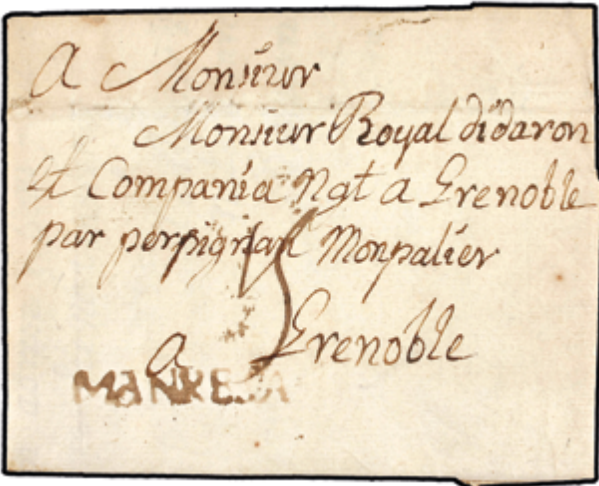 A Monsieur
Monsieur Royal didaron
et Compania Ngt a Grenoble
par perpignan Monpalier
a Grenoble
MANRESA